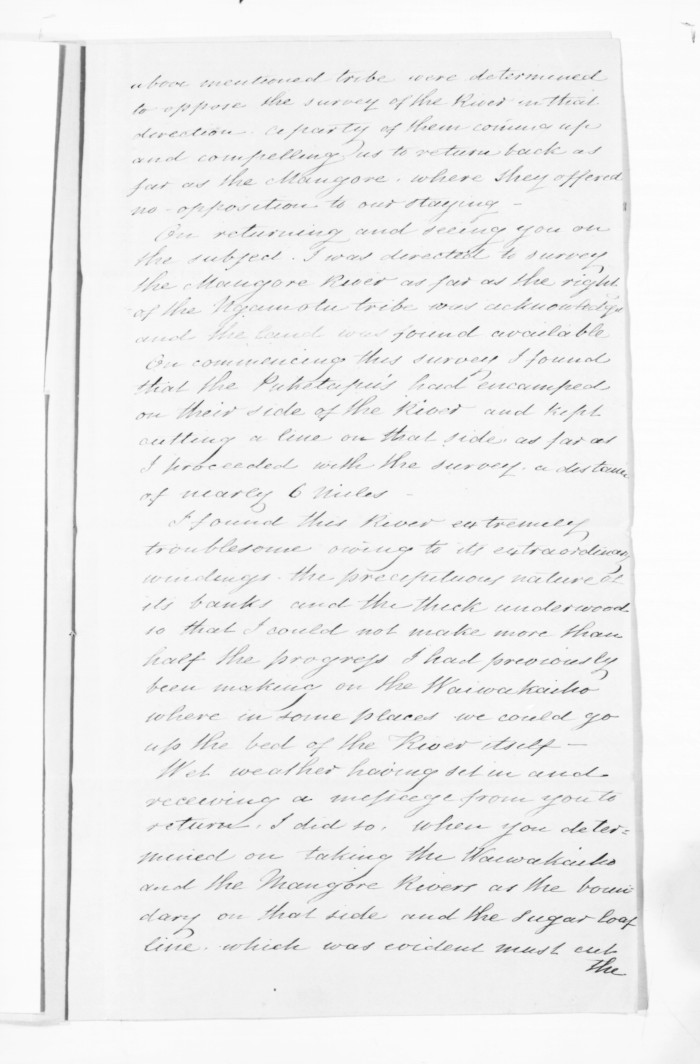 above mentioned tribe were determined
to oppose the survey of the River in that
direction. a party of them coming up
and compelling us to return back as
far as the Mangore. where they offered
no opposition to our staying –
On returning and seeing you on
the subject. I was directed to survey
the Mangore River as far as the right
of the Ngamotu tribe was acknowledged
and the land was found available
On commencing this survey I found
that the Puketapu's had encamped
on their side of the River and kept
cutting a line on that side as far as
I proceeded with the survey. a distance
of nearly 6 Miles –
I found this River extremely
troublesome owing to its extraordinary
windings. the precipituous nature of
its banks and the thick underwood
so that I could not make more than
half the progress I had previously
been making on the Waiwakaiho
where in some places we could go
up the bed of the River itself –
Wet weather having set in and
receiving a message from you to
return, I did so, when you deter=
mined on taking the Waiwakaiho
and the Mangore Rivers as the boun
dary on that side and the Sugar loaf
line. which was evident must cut
the